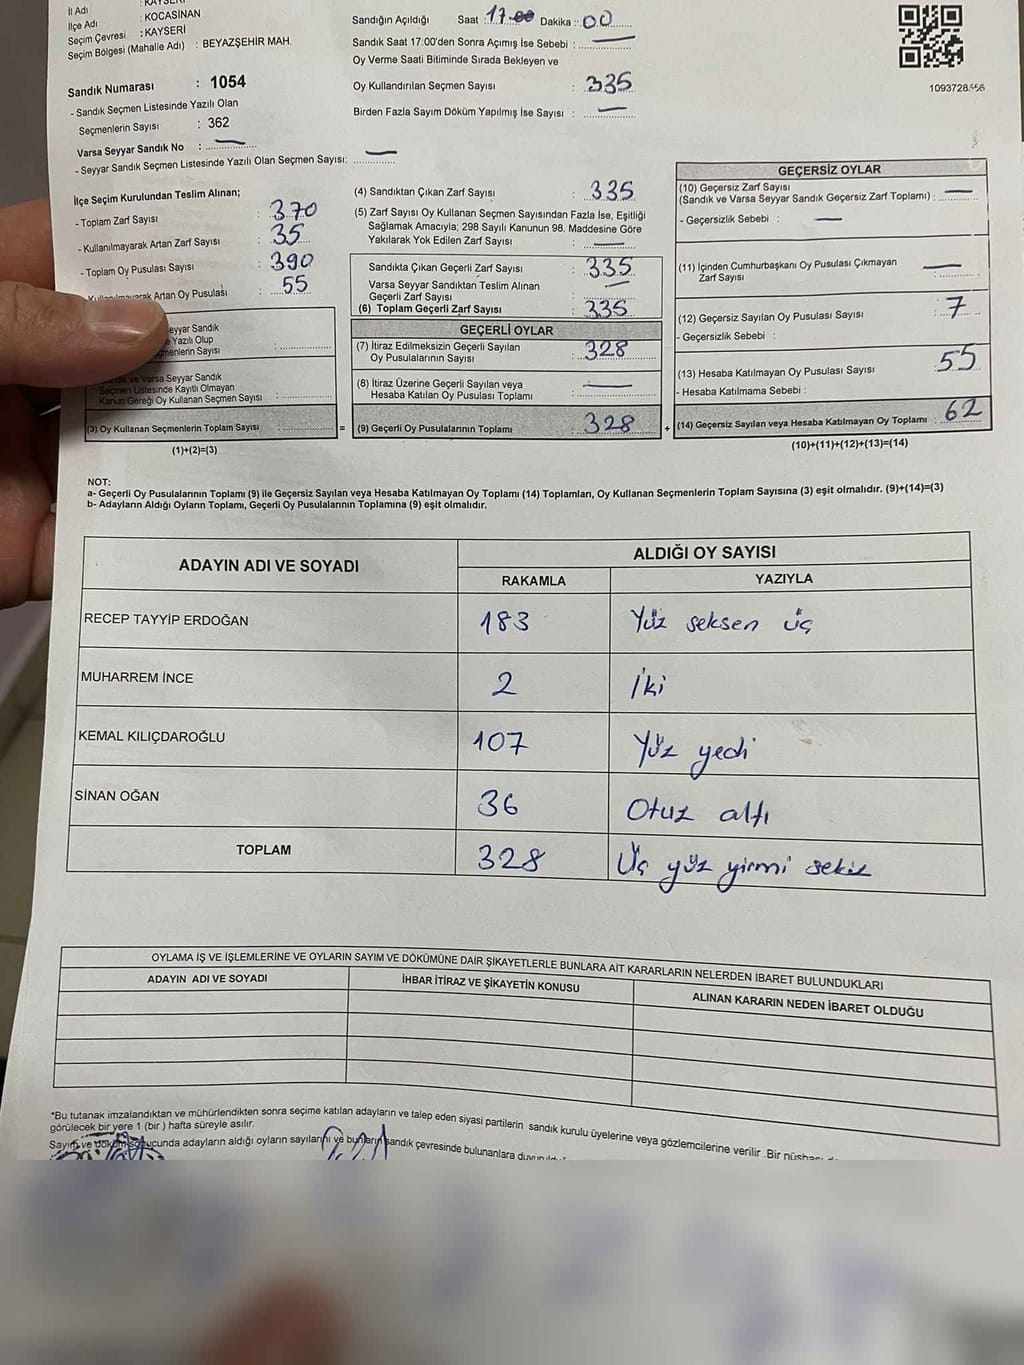 İl Adı : KAYSERİ
İlçe Adı : KOCASİNAN
Seçim Çevresi : KAYSERİ
Seçim Bölgesi (Mahalle Adı) : BEYAZŞEHİR MAH.
Sandık Numarası : 1054
- Sandık Seçmen Listesinde Yazılı Olan
Seçmenlerin Sayısı : 362
Varsa Seyyar Sandık No : —
- Seyyar Sandık Seçmen Listesinde Yazılı Olan Seçmen Sayısı: —
Sandığın Açıldığı Saat : 17.00 Dakika : 00
Sandık Saat 17:00'den Sonra Açımış İse Sebebi : —
Oy Verme Saati Bitiminde Sırada Bekleyen ve
Oy Kullandırılan Seçmen Sayısı : 335
Birden Fazla Sayım Döküm Yapılmış İse Sayısı : —
1093728
İlçe Seçim Kurulundan Teslim Alınan;
- Toplam Zarf Sayısı : 370
- Kullanılmayarak Artan Zarf Sayısı : 35
- Toplam Oy Pusulası Sayısı : 390
Kullanılmayarak Artan Oy Pusulası : 55
eyyar Sandık
Yazılı Olup
menlerin Sayısı :
ve Varsa Seyyar Sandık
Seçmen Listesinde Kayıtlı Olmayan
Kanun Gereği Oy Kullanan Seçmen Sayısı :
(3) Oy Kullanan Seçmenlerin Toplam Sayısı : =
(1)+(2)=(3)
(4) Sandıktan Çıkan Zarf Sayısı : 335
(5) Zarf Sayısı Oy Kullanan Seçmen Sayısından Fazla İse, Eşitliği
Sağlamak Amacıyla; 298 Sayılı Kanunun 98. Maddesine Göre
Yakılarak Yok Edilen Zarf Sayısı : —
Sandıkta Çıkan Geçerli Zarf Sayısı : 335
Varsa Seyyar Sandıktan Teslim Alınan
Geçerli Zarf Sayısı : —
(6) Toplam Geçerli Zarf Sayısı : 335
GEÇERLİ OYLAR
(7) İtiraz Edilmeksizin Geçerli Sayılan
Oy Pusulalarının Sayısı : 328
(8) İtiraz Üzerine Geçerli Sayılan veya
Hesaba Katılan Oy Pusulası Toplamı : —
(9) Geçerli Oy Pusulalarının Toplamı : 328 +
GEÇERSİZ OYLAR
(10) Geçersiz Zarf Sayısı
(Sandık ve Varsa Seyyar Sandık Geçersiz Zarf Toplamı) : —
- Geçersizlik Sebebi : —
(11) İçinden Cumhurbaşkanı Oy Pusulası Çıkmayan
Zarf Sayısı : —
(12) Geçersiz Sayılan Oy Pusulası Sayısı : 7
- Geçersizlik Sebebi :
(13) Hesaba Katılmayan Oy Pusulası Sayısı : 55
- Hesaba Katılmama Sebebi :
(14) Geçersiz Sayılan veya Hesaba Katılmayan Oy Toplamı : 62
(10)+(11)+(12)+(13)=(14)
NOT:
a- Geçerli Oy Pusulalarının Toplamı (9) ile Geçersiz Sayılan veya Hesaba Katılmayan Oy Toplamı (14) Toplamları, Oy Kullanan Seçmenlerin Toplam Sayısına (3) eşit olmalıdır. (9)+(14)=(3)
b- Adayların Aldığı Oyların Toplamı, Geçerli Oy Pusulalarının Toplamına (9) eşit olmalıdır.
ADAYIN ADI VE SOYADI
ALDIĞI OY SAYISI
RAKAMLA YAZIYLA
RECEP TAYYİP ERDOĞAN 183 Yüz seksen üç
MUHARREM İNCE 2 İki
KEMAL KILIÇDAROĞLU 107 Yüz yedi
SİNAN OĞAN 36 Otuz altı
TOPLAM 328 Üç yüz yirmi sekiz
OYLAMA İŞ VE İŞLEMLERİNE VE OYLARIN SAYIM VE DÖKÜMÜNE DAİR ŞİKAYETLERLE BUNLARA AİT KARARLARIN NELERDEN İBARET BULUNDUKLARI
ADAYIN ADI VE SOYADI İHBAR İTİRAZ VE ŞİKAYETİN KONUSU ALINAN KARARIN NEDEN İBARET OLDUĞU
*Bu tutanak imzalandıktan ve mühürlendikten sonra seçime katılan adayların ve talep eden siyasi partilerin sandık kurulu üyelerine veya gözlemcilerine verilir .Bir nüshası
görülecek bir yere 1 (bir ) hafta süreyle asılır.
Sayım ve döküm sonucunda adayların aldığı oyların sayılarını ve bunların sandık çevresinde bulunanlara